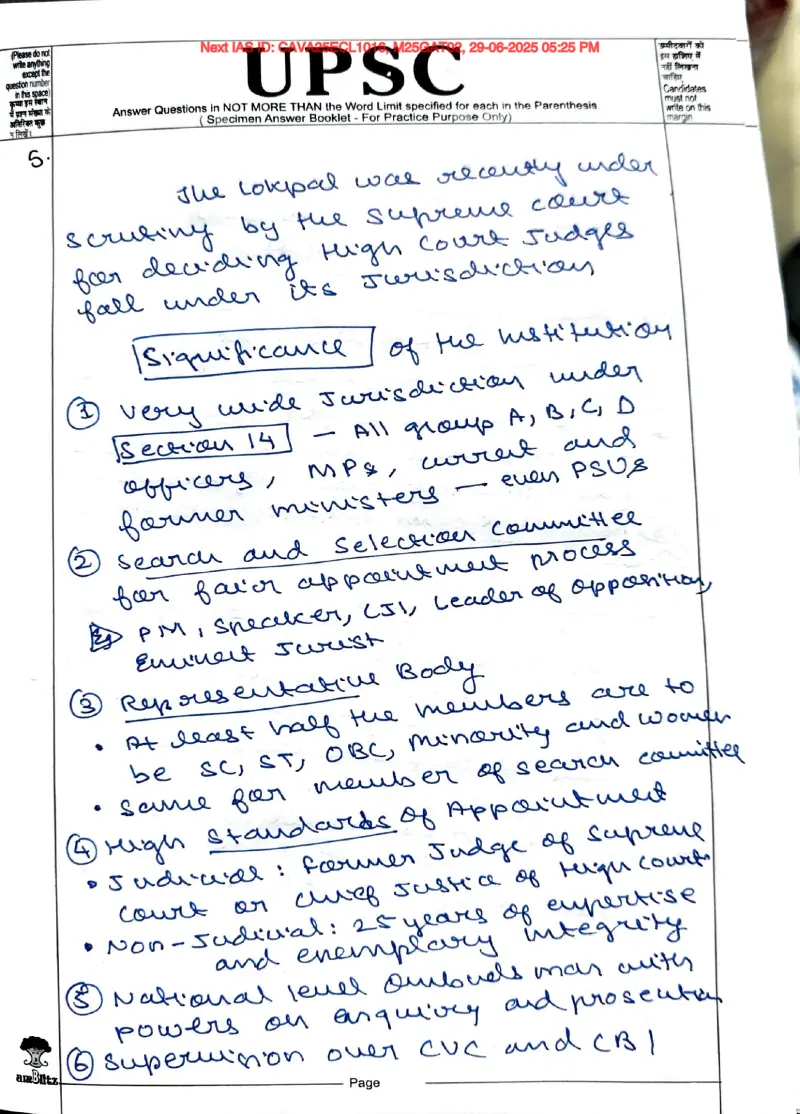 Next IAS ID: CAVA25ECL1016, M25GAT02, 29-06-2025 05:25 PM
UPSC
(Please do not
write anything
except the
question number
in this space)
कृपया इस स्थान
में प्रश्न संख्या के
अतिरिक्त कुछ
न लिखें।
Answer Questions in NOT MORE THAN the Word Limit specified for each in the Parenthesis.
( Specimen Answer Booklet - For Practice Purpose Only)
उम्मीदवारों को
इस हाशिए में
नहीं लिखना
चाहिए
Candidates
must not
write on this
margin
5.
The Lokpal was recently under
scrutiny by the Supreme Court
for deciding High Court Judges
fall under its Jurisdiction
Significance of the Institution
① Very wide Jurisdiction under
Section 14 – All group A, B, C, D
officers, MPs, current and
former ministers – even PSUs
② Search and Selection Committee
for fair appointment process
Eg PM, Speaker, CJI, Leader of Opposition,
Eminent Jurist
③ Representative Body
• At least half the members are to
be SC, ST, OBC, Minority and women
• Same for member of search committee
④ High Standards of Appointment
• Judicial: Former Judge of Supreme
Court or Chief Justice of High Court
• Non-Judicial: 25 years of expertise
and exemplary integrity
⑤ National level Ombudsman with
powers on enquiry and prosecution
⑥ Supervision over CVC and CBI
Page